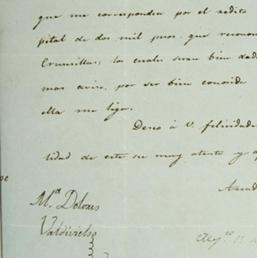 que me corresponden por el redito
pital de dos mil pesos, que recono
los cuales seran bien dad
mas aviso, por ser bien conocida
ella me liga.
Deseo á V. felicidade
tidad de este su muy atento y a
Mª Dolores
Valdivielso